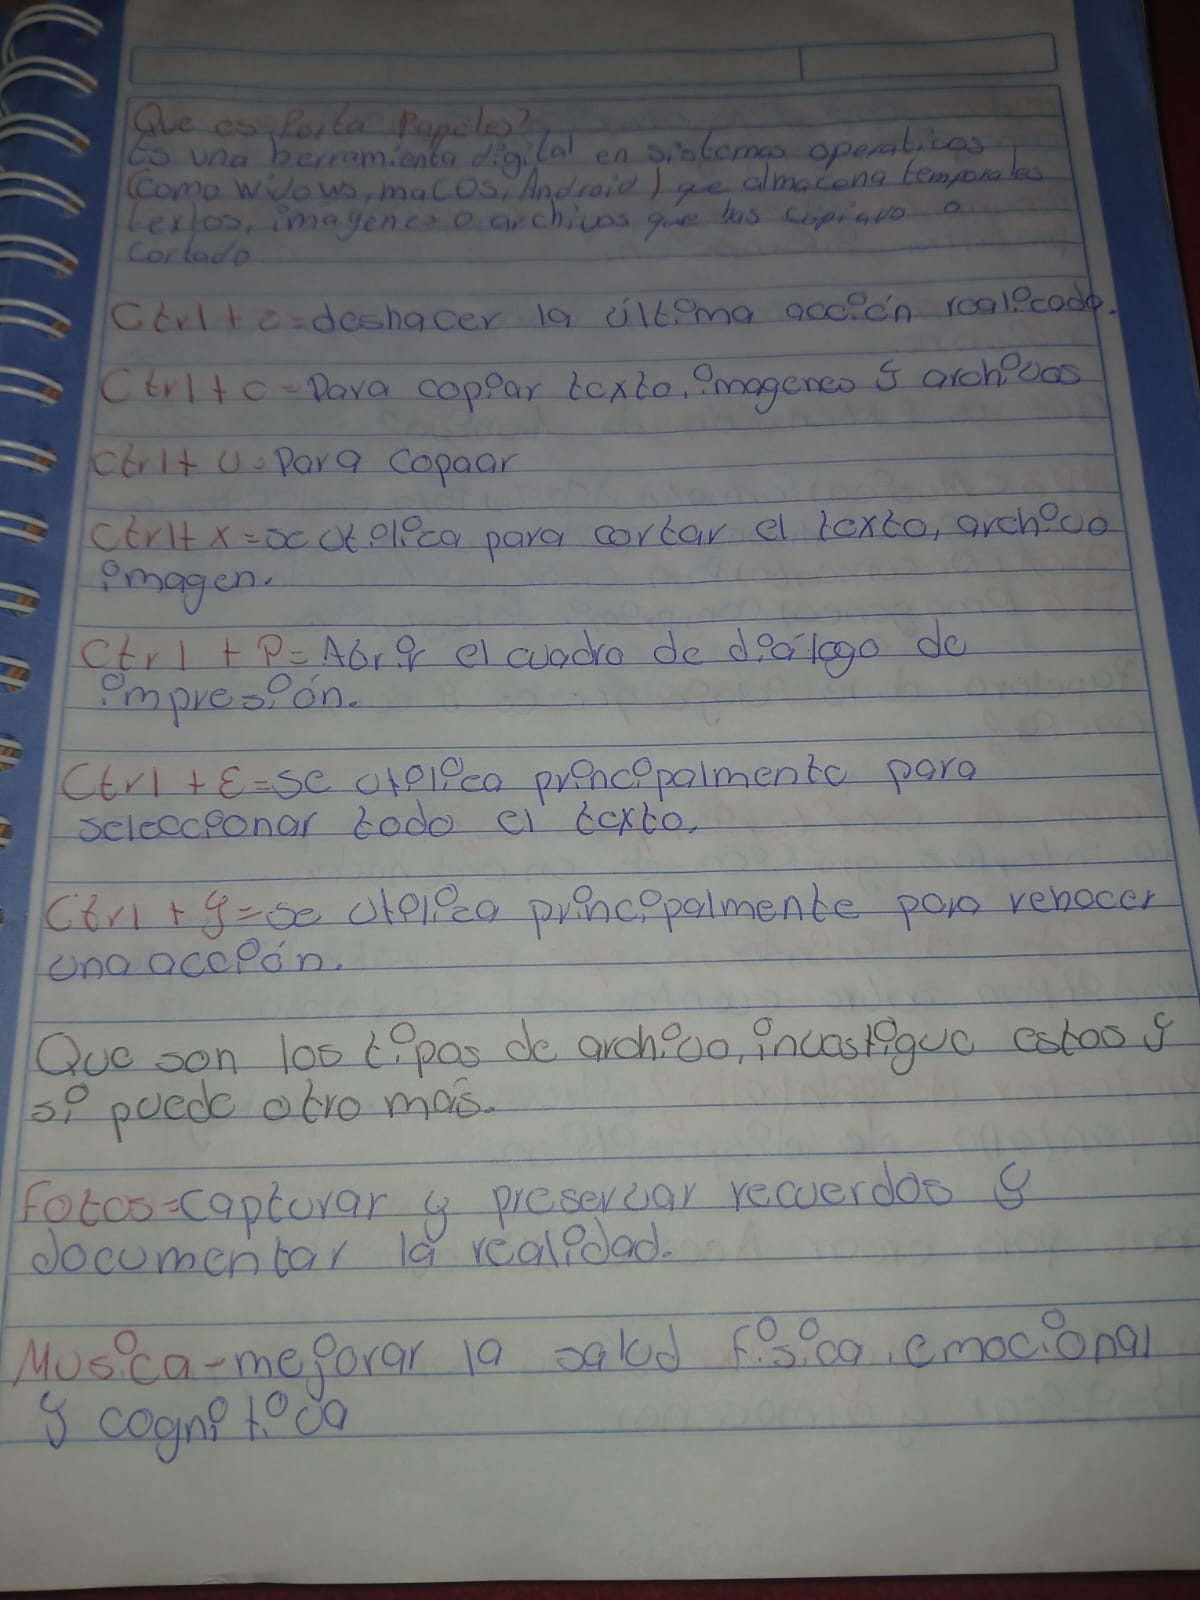 Que es Porta Papeles?
Es una herramienta digital en sistemas operativos
(como widows, macOS, Android) que almacena temporales
textos, imagenes o archivos que has copiado o
cortado
Ctrl + z = deshacer la última acción realicada.
Ctrl + c = Para copiar texto, imagenes y archivos
Ctrl + U = Para copaar
Ctrl + x = se utilica para cortar el texto, archivo
imagen.
Ctrl + P = Abrir el cuadro de diálogo de
impresión.
Ctrl + E = se utilica principalmente para
seleccionar todo el texto.
Ctrl + y = se utilica principalmente para rehacer
una acción.
Que son los tipos de archivo, investigue estos y
si puede otro más.
Fotos = capturar y preservar recuerdos y
documentar la realidad.
Musica - mejorar la salud fisica, emocional
y cognitiva